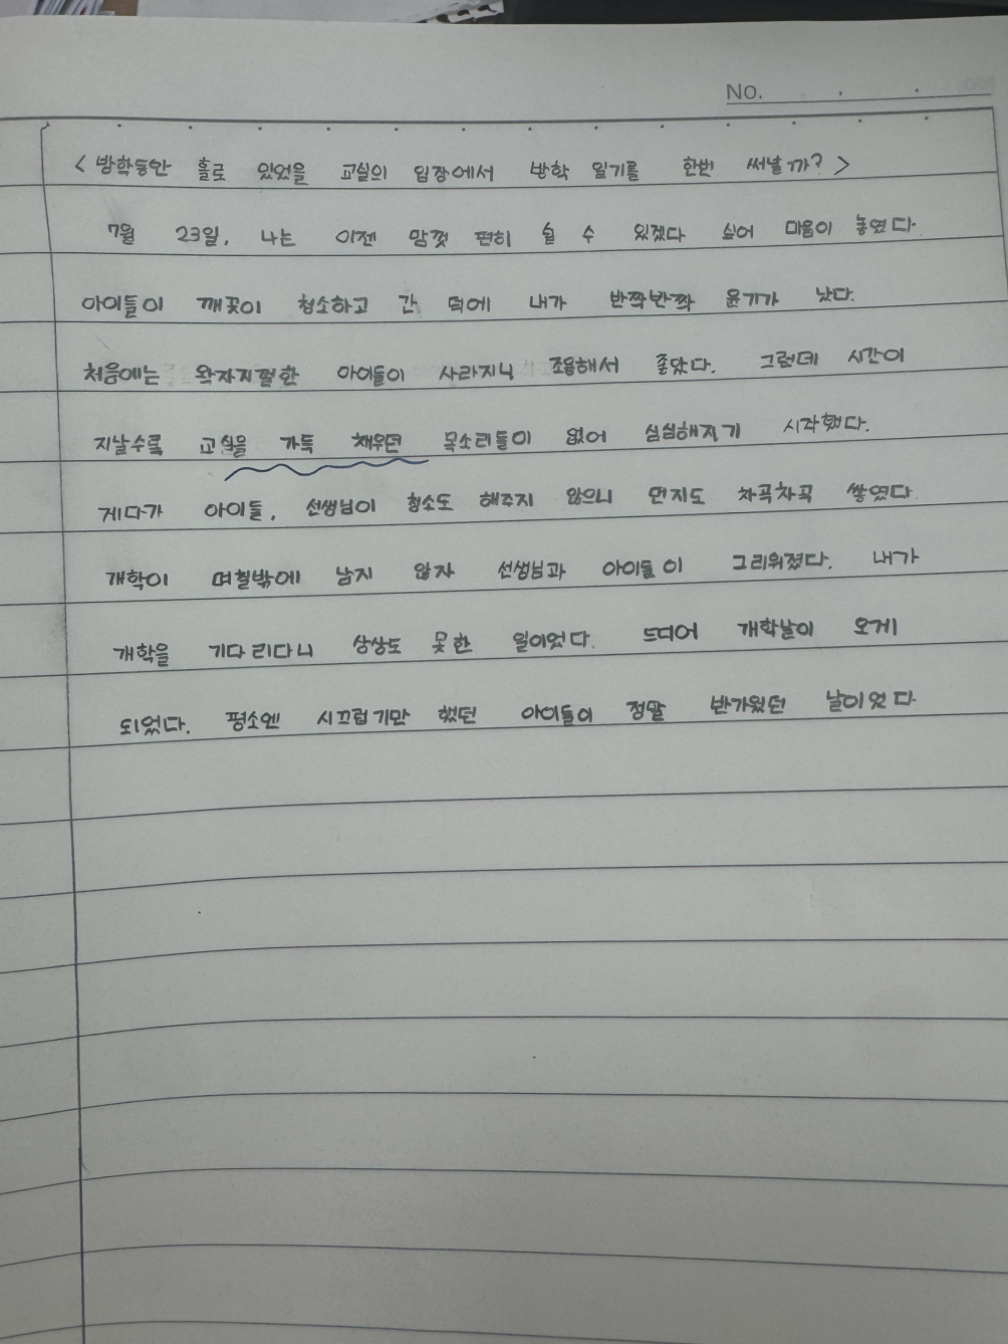 No.
<방학동안 홀로 있었을 교실의 입장에서 방학 일기를 한번 써낼까?>
7월 23일, 나는 이젠 맘껏 편히 쉴 수 있겠다 싶어 마음이 놓였다.
아이들이 깨끗이 청소하고 간 덕에 내가 반짝반짝 윤기가 났다.
처음에는 왁자지껄한 아이들이 사라지니 조용해서 좋았다. 그런데 시간이
지날수록 교실을 가득 채우던 목소리들이 없어 심심해지기 시작했다.
게다가 아이들, 선생님이 청소도 해주지 않으니 먼지도 차곡차곡 쌓였다.
개학이 며칠밖에 남지 않자 선생님과 아이들이 그리워졌다. 내가
개학을 기다리다니 상상도 못한 일이었다. 드디어 개학날이 오게
되었다. 평소엔 시끄럽기만 했던 아이들이 정말 반가웠던 날이었다